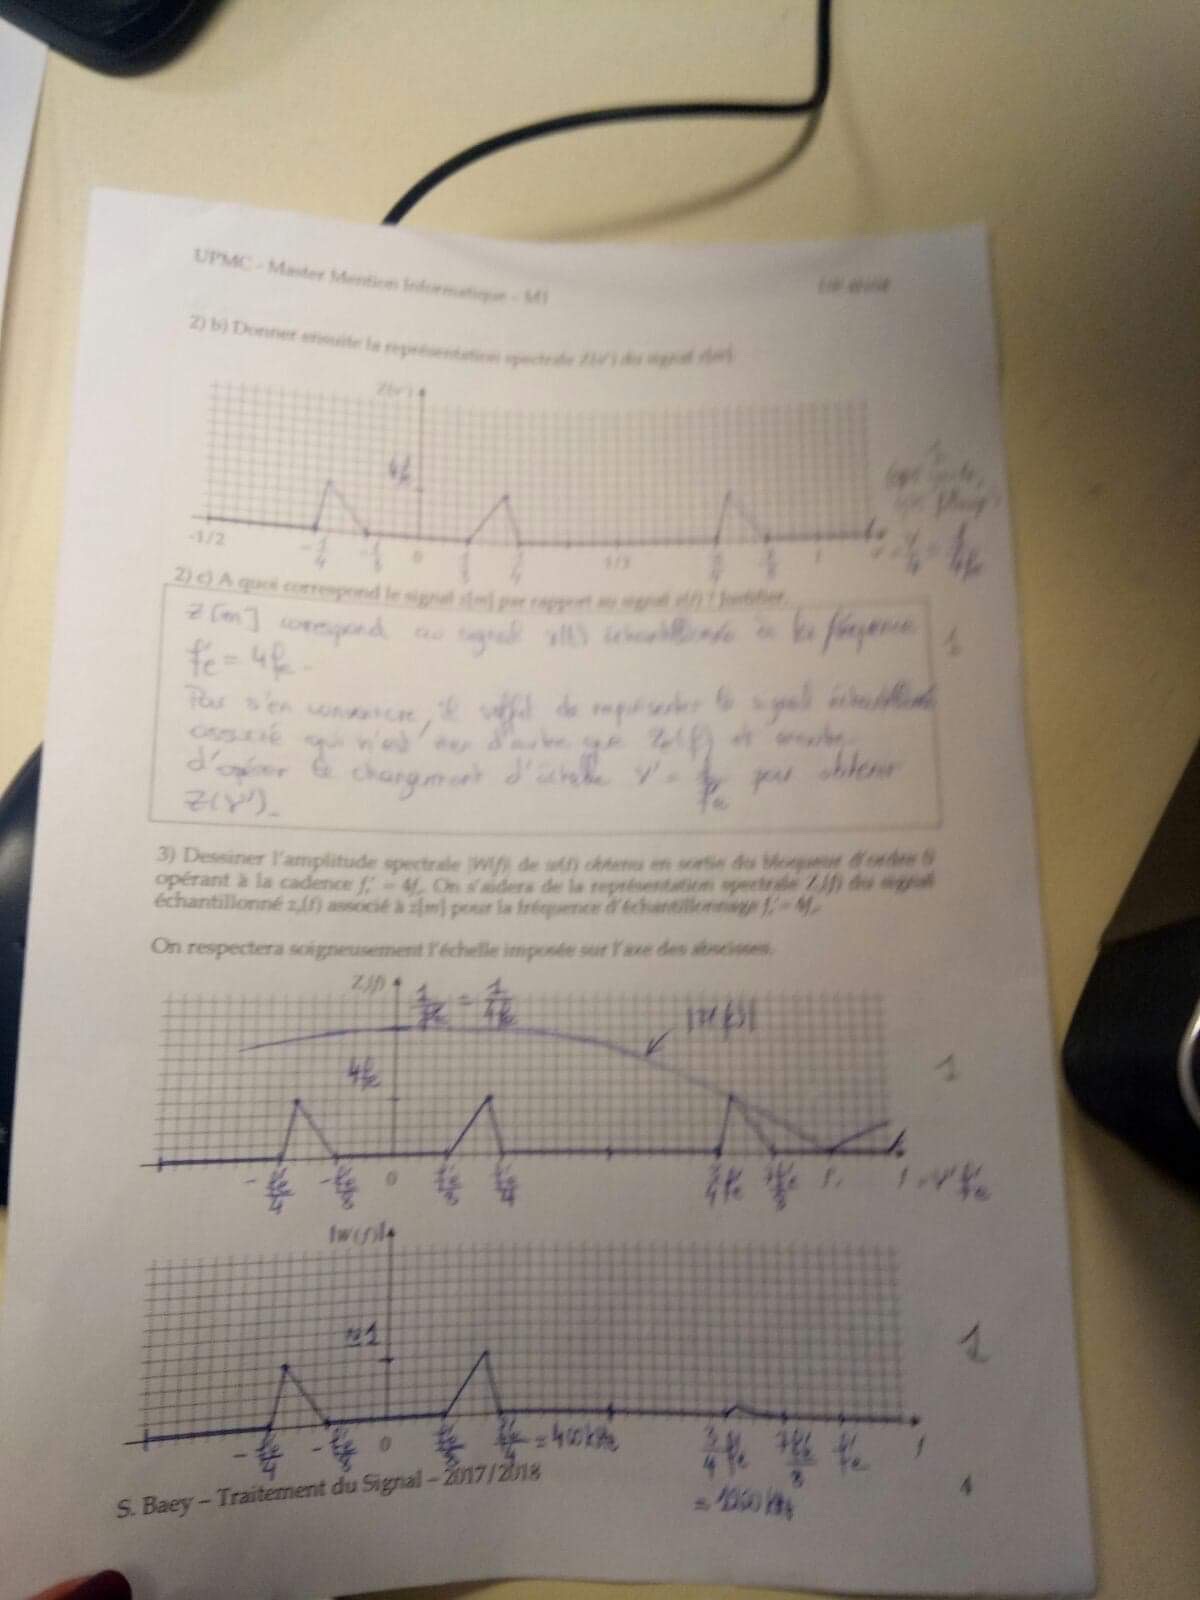 UPMC - Master Mention Informatique - M1
2) b) Donner ensuite la représentation spectrale Z(ν') du signal z[m].
Z(ν')
4fe
-1/2 -1/4 -1/8 0 1/8 1/4 1/2 3/4 7/8 1
2) c) A quoi correspond le signal z[m] par rapport au signal x(t) ? Justifier.
Z[m] correspond au signal x(t) échantillonné à la fréquence
f'e = 4fe.
Pour s'en convaincre, il suffit de représenter le signal échantillonné
associé qui n'est rien d'autre que Ze(f) et ensuite
d'opérer le changement d'échelle ν' = f/f'e pour obtenir
Z(ν').
1
3) Dessiner l'amplitude spectrale |W(f)| de w(t) obtenu en sortie du bloqueur d'ordre 0
opérant à la cadence f'e = 4fe. On s'aidera de la représentation spectrale Ze(f) du signal
échantillonné ze(t) associé à z[m] pour la fréquence d'échantillonnage f'e = 4fe.
On respectera soigneusement l'échelle imposée sur l'axe des abscisses.
Ze(f)
1/f'e = 1/4fe
|H(f)|
4fe
1
-f'e/4 -f'e/8 0 f'e/8 f'e/4 3/4 f'e 7f'e/8 f = ν' f'e
|W(f)|
≈1
1
-f'e/4 -f'e/8 0 f'e/8 f'e/4 = 400kHz 3/4 f'e 7f'e/8 f'e f
= 1200kHz
S. Baey – Traitement du Signal – 2017/2018
4